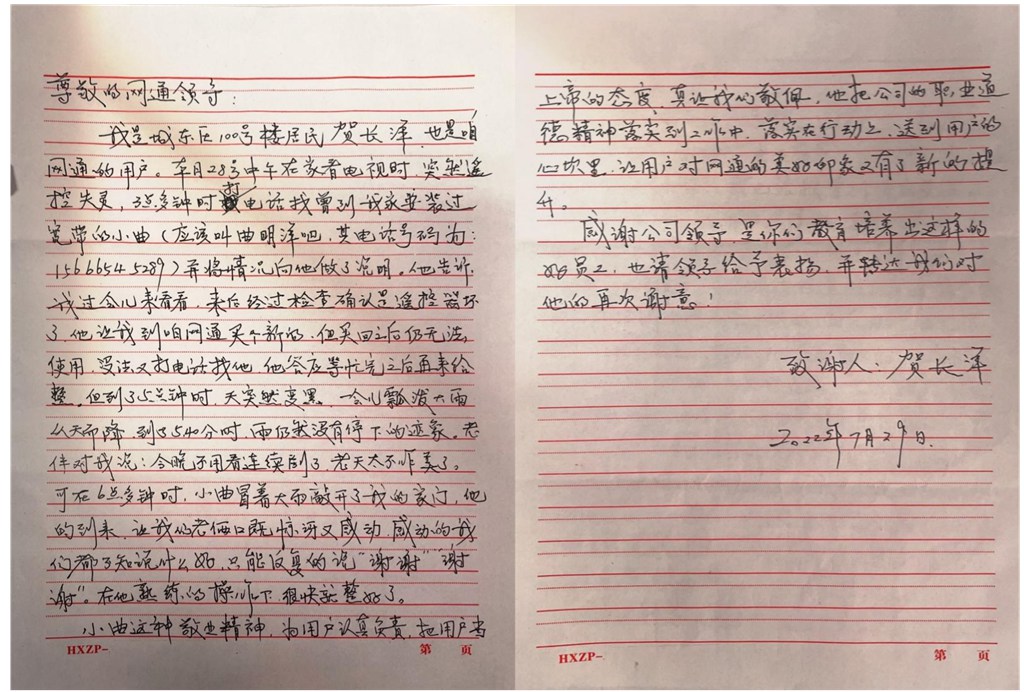 尊敬的网通领导：
我是城东区100号楼居民贺长泽，也是咱
网通的用户。本月28号中午在家看电视时，突然遥
控失灵，3点多钟时打电话找曾到我家安装过
宽带的小曲（应该叫曲明泽吧，其电话号码为：
15666545289）并将情况向他做了说明。他告诉
我过会儿来看看，来后经过检查确认是遥控器坏
了，他让我到咱网通买个新的，但买回之后仍无法
使用，没法又打电话找他，他答应等忙完之后再来给
整。但到了5点钟时，天突然变黑，一会儿瓢泼大雨
从天而降，到了5点40分时，雨仍然没有停下的迹象。老
伴对我说：今晚不用看连续剧了，老天太不作美了。
可在6点多钟时，小曲冒着大雨敲开了我的家门，他
的到来，让我们老俩口既惊讶又感动，感动的我
们都不知说什么好，只能反复的说“谢谢”“谢
谢”。在他熟练的操作下很快就整好了。
小曲这种敬业精神，为用户认真负责，把用户当
HXZP-
第 页
上帝的态度，真让我们敬佩，他把公司的职业道
德精神落实到工作中，落实在行动上，送到用户的
心坎里，让用户对网通的美好印象又有了新的提
升。
感谢公司领导，是你们教育培养出这样的
好员工，也请领导给予表扬，并转达我们对
他的再次谢意！
致谢人：贺长泽
2022年7月29日.
HXZP-
第 页